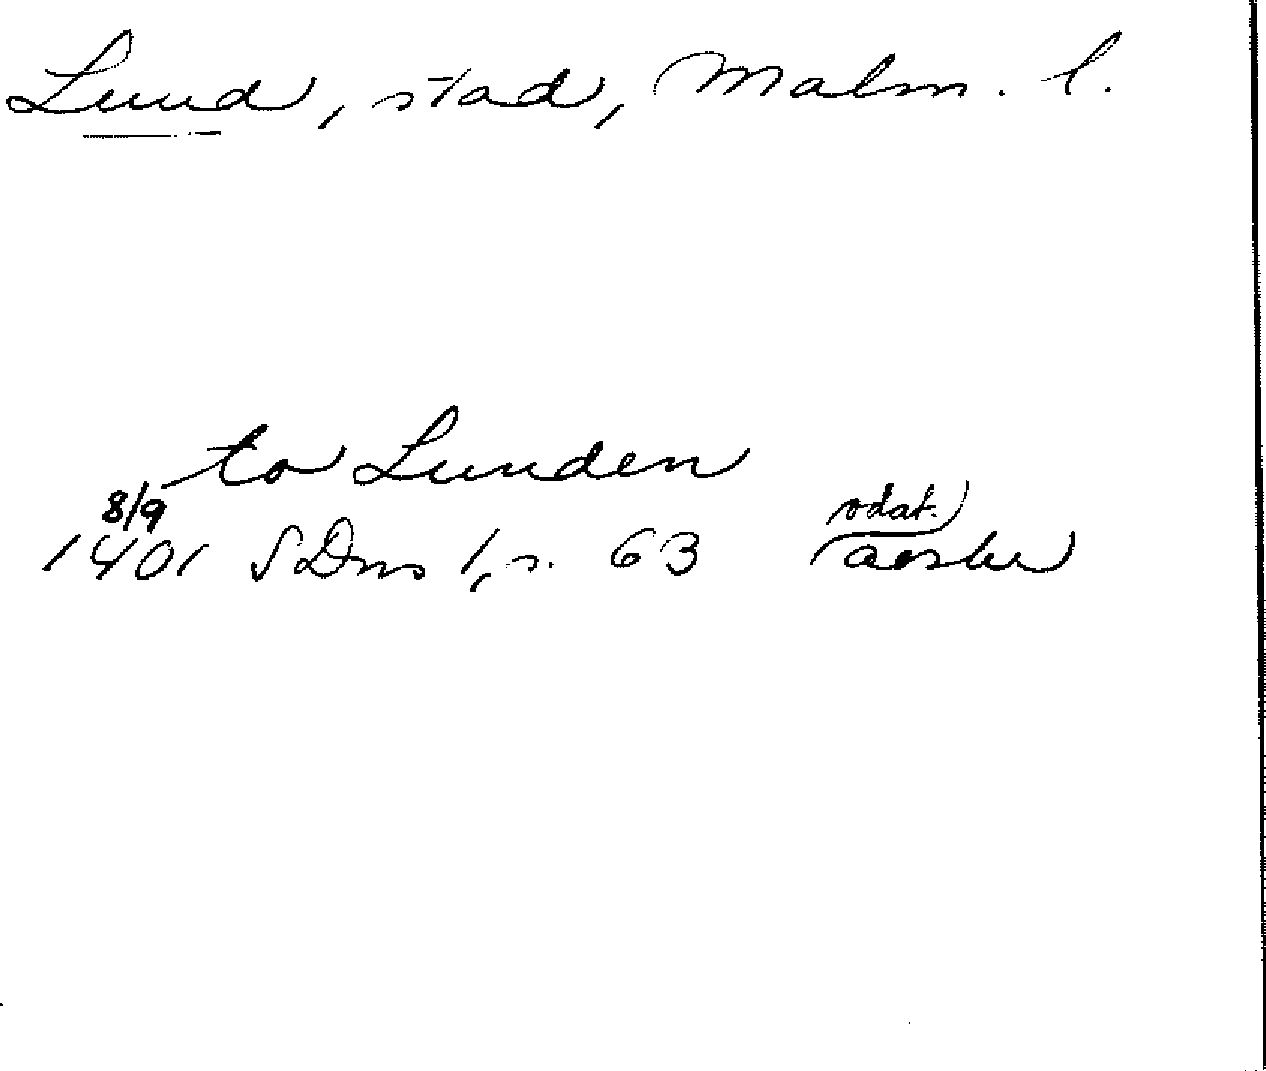 Lund, stad, Malm. l.
to Lunden
8/9
odat.
1401 SDns 1, s. 63